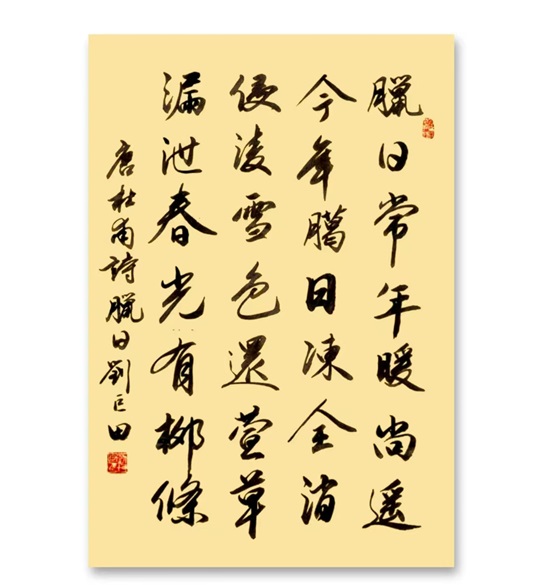 臘日常年暖尚遥
今年臈日凍全消
侵凌雪色還萱草
漏泄春光有柳條
唐杜甫詩臘日劉巨田